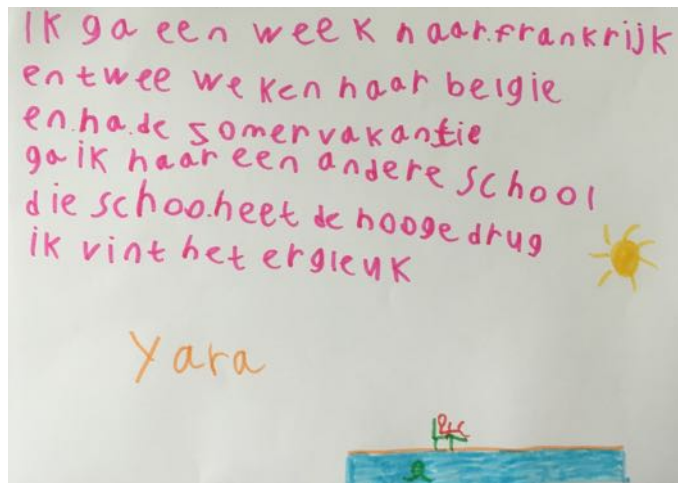 Ik ga een week naar.frankrijk
en twee weken naar belgie
en.na.de somervakantie
ga ik naar een andere school
die schoo.heet de hooge drug
ik vint het ergleuk
Yara